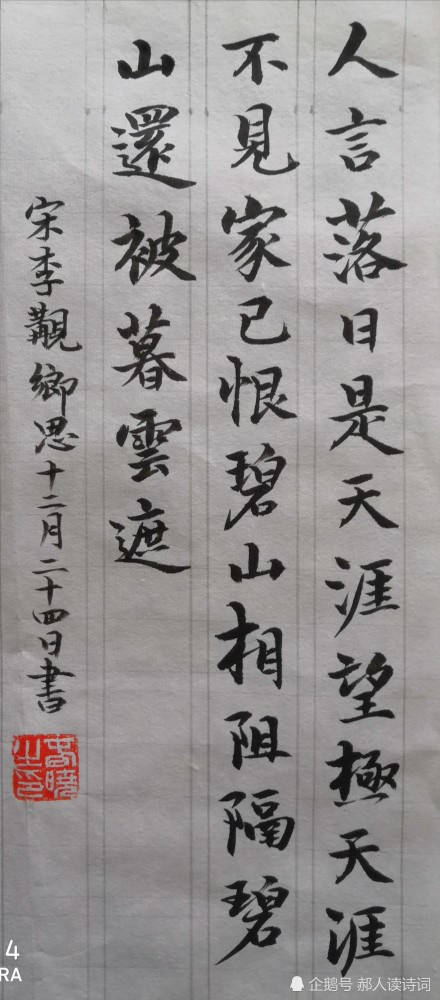 人言落日是天涯望極天涯
不見家已恨碧山相阻隔碧
山還被暮雲遮
宋李觀鄉思十二月二十四日書
4
RA
企鹅号 郝人读诗词